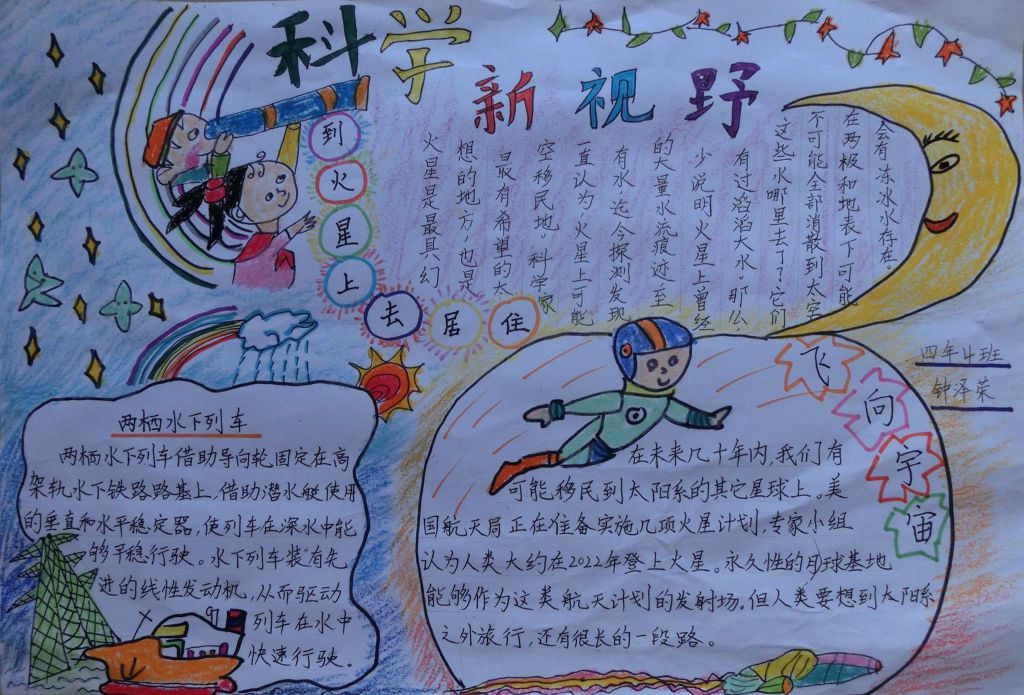 科学
新视野
到火星上去居住
火星是最具幻
想的地方,也是
最有希望的太
空移民地。科学家
一直认为,火星上可能
有水。迄今探测发现
的大量水流痕迹,至
少说明火星上曾经
有过滔滔大水,那么
这些水哪里去了?它们
不可能全部消散到太空
在两极和地表下可能
会有冻冰水存在。
四年4班
钟泽荣
两栖水下列车
两栖水下列车借助导向轮固定在高
架轨水下铁路路基上,借助潜水艇使用
的垂直和水平稳定器,使列车在深水中能
够平稳行驶。水下列车装有先
进的线性发动机,从而驱动
列车在水中
快速行驶。
飞向宇宙
在未来几十年内,我们有
可能移民到太阳系的其它星球上。美
国航天局正在准备实施几项火星计划,专家小组
认为人类大约在2022年登上火星。永久性的月球基地
能够作为这类航天计划的发射场。但人类要想到太阳系
之外旅行,还有很长的一段路。